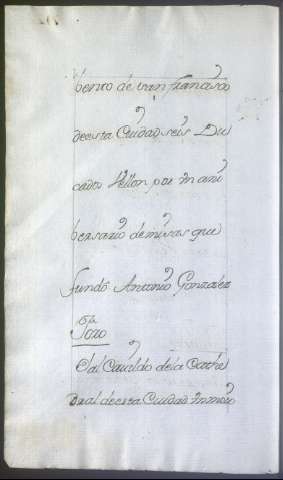 bento de san fran.co
deesta Ciudad, seis Du
cados Vellon por un ani
bersario de misas que
fundó Antonio Gonzalez
Toro
al Cavildo de la Cathe
dral deesta Ciudad un m